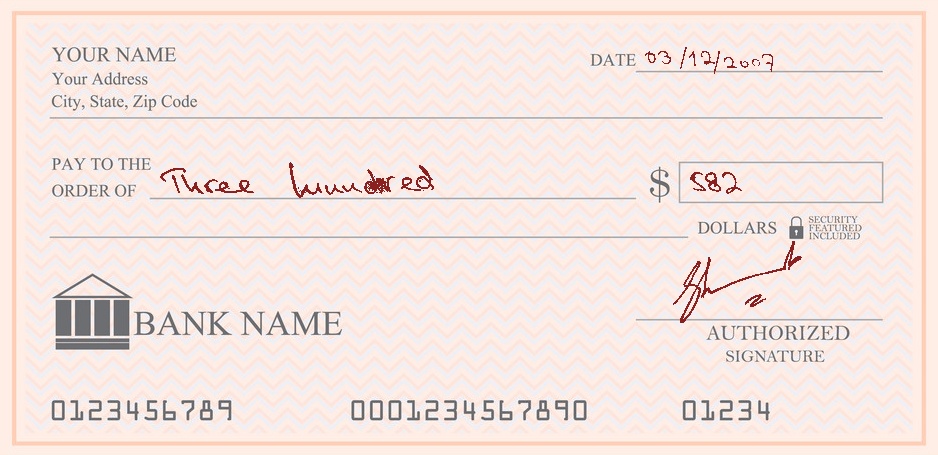 YOUR NAME
Your Address
City, State, Zip Code
DATE 03/12/2007
PAY TO THE
ORDER OF Three hundred $ 582
DOLLARS SECURITY
FEATURED
INCLUDED
BANK NAME
AUTHORIZED
SIGNATURE
0123456789 0001234567890 01234